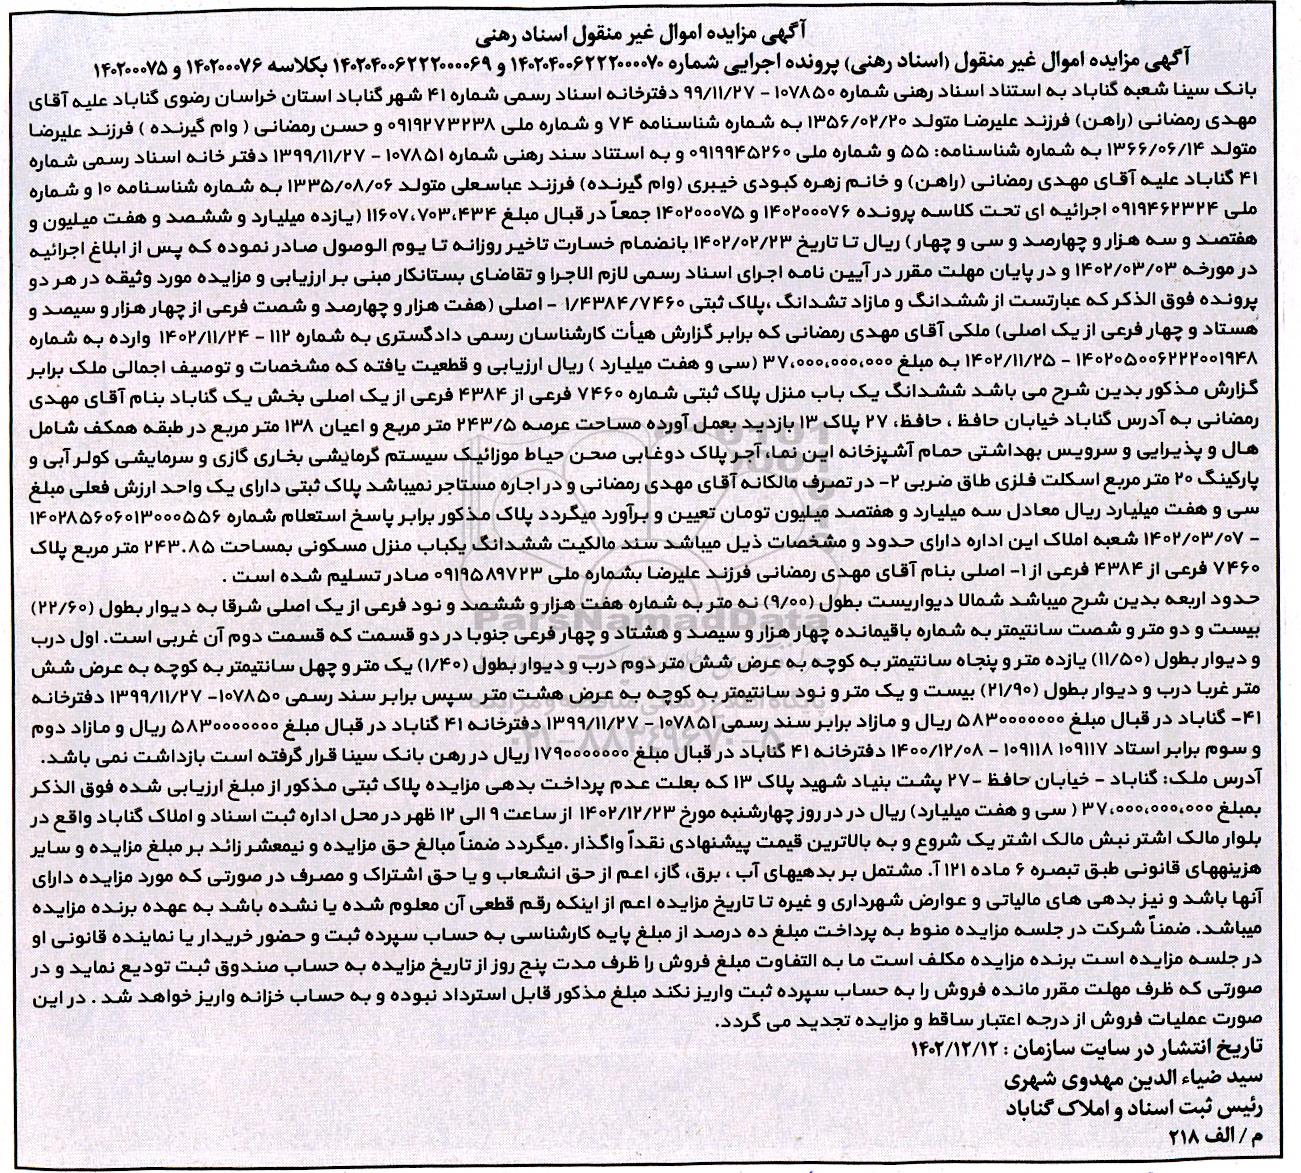 آگهی مزایده اموال غیر منقول اسناد رهنی
آگهی مزایده اموال غیر منقول (اسناد رهنی) پرونده اجرایی شماره ۱۴۰۲۰۴۰۰۶۲۲۲۰۰۰۰۷۰ و ۱۴۰۲۰۴۰۰۶۲۲۲۰۰۰۰۶۹ بکلاسه ۱۴۰۲۰۰۰۷۶ و ۱۴۰۲۰۰۰۷۵
بانک سینا شعبه گناباد به استناد اسناد رهنی شماره ۱۰۷۸۵۰ - ۹۹/۱۱/۲۷ دفترخانه اسناد رسمی شماره ۴۱ شهر گناباد استان خراسان رضوی گناباد علیه آقای
مهدی رمضانی (راهن) فرزند علیرضا متولد ۱۳۵۶/۰۲/۲۰ به شماره شناسنامه ۷۴ و شماره ملی ۰۹۱۹۲۷۳۲۳۸ و حسن رمضانی ( وام گیرنده ) فرزند علیرضا
متولد ۱۳۶۶/۰۶/۱۴ به شماره شناسنامه: ۵۵ و شماره ملی ۰۹۱۹۹۴۵۲۶۰ و به استناد سند رهنی شماره ۱۰۷۸۵۱ - ۱۳۹۹/۱۱/۲۷ دفتر خانه اسناد رسمی شماره
۴۱ گناباد علیه آقای مهدی رمضانی (راهن) و خانم زهره کبودی خیبری (وام گیرنده) فرزند عباسعلی متولد ۱۳۳۵/۰۸/۰۶ به شماره شناسنامه ۱۰ و شماره
ملی ۰۹۱۹۴۶۲۳۲۴ اجرائیه ای تحت کلاسه پرونده ۱۴۰۲۰۰۰۷۶ و ۱۴۰۲۰۰۰۷۵ جمعاً در قبال مبلغ ۱۱۶۰۷،۷۰۳،۴۳۴ (یازده میلیارد و ششصد و هفت میلیون و
هفتصد و سه هزار و چهارصد و سی و چهار) ریال تا تاریخ ۱۴۰۲/۰۲/۲۳ بانضمام خسارت تاخیر روزانه تا یوم الوصول صادر نموده که پس از ابلاغ اجرائیه
در مورخه ۱۴۰۲/۰۳/۰۳ و در پایان مهلت مقرر در آیین نامه اجرای اسناد رسمی لازم الاجرا و تقاضای بستانکار مبنی بر ارزیابی و مزایده مورد وثیقه در هر دو
پرونده فوق الذکر که عبارتست از ششدانگ و مازاد تشدانگ ،پلاک ثبتی ۱/۴۳۸۴/۷۴۶۰ - اصلی (هفت هزار و چهارصد و شصت فرعی از چهار هزار و سیصد و
هستاد و چهار فرعی از یک اصلی) ملکی آقای مهدی رمضانی که برابر گزارش هیأت کارشناسان رسمی دادگستری به شماره ۱۱۲ - ۱۴۰۲/۱۱/۲۴ وارده به شماره
۱۴۰۲۰۵۰۰۶۲۲۲۰۰۱۹۴۸ - ۱۴۰۲/۱۱/۲۵ به مبلغ ۳۷،۰۰۰،۰۰۰،۰۰۰ (سی و هفت میلیارد ) ریال ارزیابی و قطعیت یافته که مشخصات و توصیف اجمالی ملک برابر
گزارش مذکور بدین شرح می باشد ششدانگ یک باب منزل پلاک ثبتی شماره ۷۴۶۰ فرعی از ۴۳۸۴ فرعی از یک اصلی بخش یک گناباد بنام آقای مهدی
رمضانی به آدرس گناباد خیابان حافظ ، حافظ، ۲۷ پلاک ۱۳ بازدید بعمل آورده مساحت عرصه ۲۴۳/۵ متر مربع و اعیان ۱۳۸ متر مربع در طبقه همکف شامل
هال و پذیرایی و سرویس بهداشتی حمام آشپزخانه این نما، آجر پلاک دوغابی صحن حیاط موزائیک سیستم گرمایشی بخاری گازی و سرمایشی کولر آبی و
پارکینگ ۲۰ متر مربع اسکلت فلزی طاق ضربی ۲- در تصرف مالکانه آقای مهدی رمضانی و در اجاره مستاجر نمیباشد پلاک ثبتی دارای یک واحد ارزش فعلی مبلغ
سی و هفت میلیارد ریال معادل سه میلیارد و هفتصد میلیون تومان تعیین و برآورد میگردد پلاک مذکور برابر پاسخ استعلام شماره ۱۴۰۲۸۵۶۰۶۰۱۳۰۰۰۵۵۶
- ۱۴۰۲/۰۳/۰۷ شعبه املاک این اداره دارای حدود و مشخصات ذیل میباشد سند مالکیت ششدانگ یکباب منزل مسکونی بمساحت ۲۴۳.۸۵ متر مربع پلاک
۷۴۶۰ فرعی از ۴۳۸۴ فرعی از ۱- اصلی بنام آقای مهدی رمضانی فرزند علیرضا بشماره ملی ۰۹۱۹۵۸۹۷۲۳ صادر تسلیم شده است .
حدود اربعه بدین شرح میباشد شمالا دیواریست بطول (۹/۰۰) نه متر به شماره هفت هزار و ششصد و نود فرعی از یک اصلی شرقا به دیوار بطول (۲۲/۶۰)
بیست و دو متر و شصت سانتیمتر به شماره باقیمانده چهار هزار و سیصد و هشتاد و چهار فرعی جنوبا در دو قسمت که قسمت دوم آن غربی است. اول درب
و دیوار بطول (۱۱/۵۰) یازده متر و پنجاه سانتیمتر به کوچه به عرض شش متر دوم درب و دیوار بطول (۱/۴۰) یک متر و چهل سانتیمتر به کوچه به عرض شش
متر غربا درب و دیوار بطول (۲۱/۹۰) بیست و یک متر و نود سانتیمتر به کوچه به عرض هشت متر سپس برابر سند رسمی ۱۰۷۸۵۰- ۱۳۹۹/۱۱/۲۷ دفترخانه
۴۱- گناباد در قبال مبلغ ۵۸۳۰۰۰۰۰۰۰ ریال و مازاد برابر سند رسمی ۱۰۷۸۵۱ - ۱۳۹۹/۱۱/۲۷ دفترخانه ۴۱ گناباد در قبال مبلغ ۵۸۳۰۰۰۰۰۰۰ ریال و مازاد دوم
و سوم برابر استاد ۱۰۹۱۱۷ ۱۰۹۱۱۸ - ۱۴۰۰/۱۲/۰۸ دفترخانه ۴۱ گناباد در قبال مبلغ ۱۷۹۰۰۰۰۰۰۰ ریال در رهن بانک سینا قرار گرفته است بازداشت نمی باشد.
آدرس ملک: گناباد - خیابان حافظ -۲۷ پشت بنیاد شهید پلاک ۱۳ که بعلت عدم پرداخت بدهی مزایده پلاک ثبتی مذکور از مبلغ ارزیابی شده فوق الذکر
بمبلغ ۳۷،۰۰۰،۰۰۰،۰۰۰ ( سی و هفت میلیارد) ریال در در روز چهارشنبه مورخ ۱۴۰۲/۱۲/۲۳ از ساعت ۹ الی ۱۲ ظهر در محل اداره ثبت اسناد و املاک گناباد واقع در
بلوار مالک اشتر نبش مالک اشتر یک شروع و به بالاترین قیمت پیشنهادی نقداً واگذار .میگردد ضمناً مبالغ حق مزایده و نیمعشر زائد بر مبلغ مزایده و سایر
هزینههای قانونی طبق تبصره ۶ ماده ۱۲۱ آ. مشتمل بر بدهیهای آب ، برق، گاز، اعم از حق انشعاب و یا حق اشتراک و مصرف در صورتی که مورد مزایده دارای
آنها باشد و نیز بدهی های مالیاتی و عوارض شهرداری و غیره تا تاریخ مزایده اعم از اینکه رقم قطعی آن معلوم شده یا نشده باشد به عهده برنده مزایده
میباشد. ضمناً شرکت در جلسه مزایده منوط به پرداخت مبلغ ده درصد از مبلغ پایه کارشناسی به حساب سپرده ثبت و حضور خریدار یا نماینده قانونی او
در جلسه مزایده است برنده مزایده مکلف است ما به التفاوت مبلغ فروش را ظرف مدت پنج روز از تاریخ مزایده به حساب صندوق ثبت تودیع نماید و در
صورتی که ظرف مهلت مقرر مانده فروش را به حساب سپرده ثبت واریز نکند مبلغ مذکور قابل استرداد نبوده و به حساب خزانه واریز خواهد شد . در این
صورت عملیات فروش از درجه اعتبار ساقط و مزایده تجدید می گردد.
تاریخ انتشار در سایت سازمان : ۱۴۰۲/۱۲/۱۲
سید ضیاء الدین مهدوی شهری
رئیس ثبت اسناد و املاک گناباد
م / الف ۲۱۸
ParsNamadData